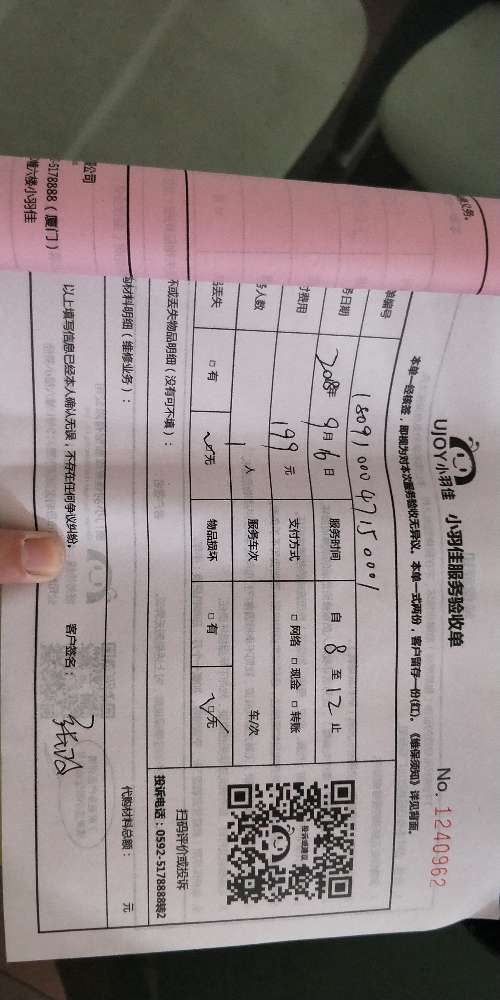 UJOY小羽佳 小羽佳服务验收单 No. 1240962
本单一经核签，即视为对本次服务验收无异议。本单一式两份，客户留存一份(红)。《维保须知》详见背面。
单编号 1809100047150001
务日期 2018年 9月16日 服务时间 自 8 至 12 止
付费用 199 元 支付方式 □网络 □现金 □转账
人数 1 人 服务车次 车/次
丢失 □有 ☑无 物品损坏 □有 ☑无
坏或丢失物品明细（没有可不填）：
购材料明细（维修业务）：
代购材料总额： 元
扫码评价或投诉
投诉电话：0592-5178888转2
投诉或建议
以上填写信息已经本人确认无误，不存在任何争议纠纷。 客户签名：
公司
-5178888（厦门）
六楼小羽佳
义务。